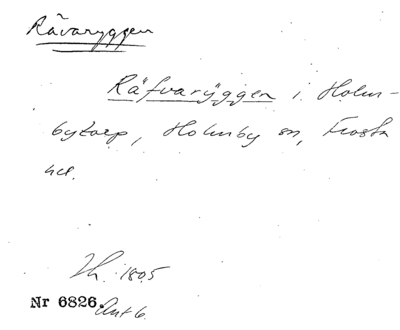 Rävaryggen
Räfvarÿggen i Holm-
bytorp, Holmby sn, Frosta
hd.
Th. 1805
Nr 6826.
Ant 6.